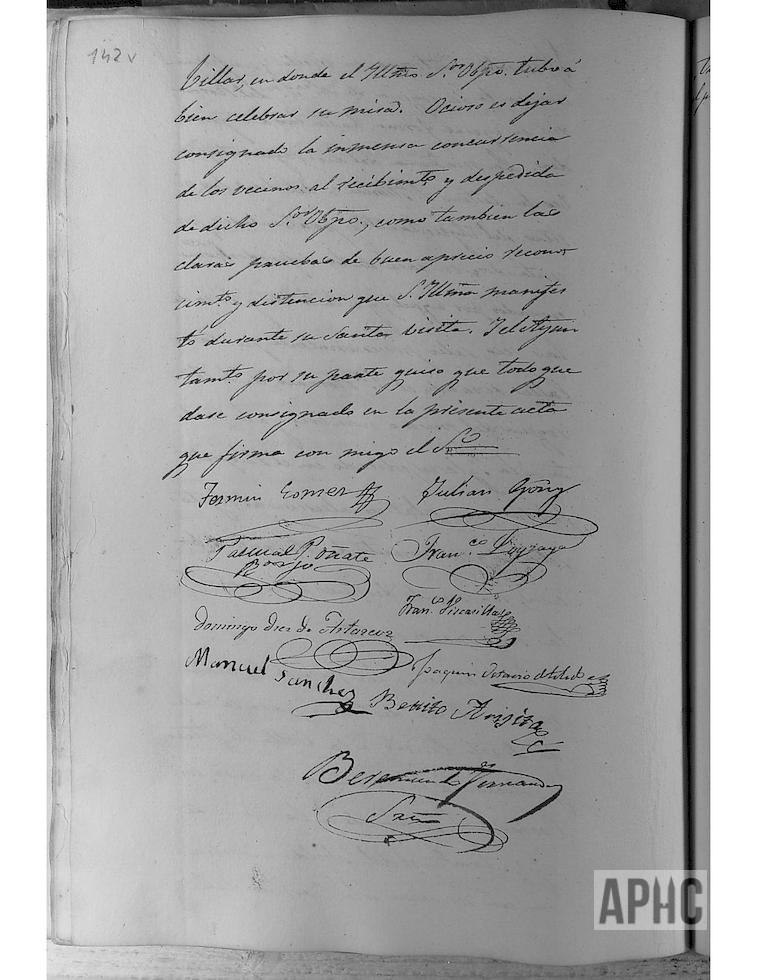 142v
Villar, en donde el Yllmo Sor Obpo. tubo á
bien celebrar su misa. Ocioso es dejar
consignado la inmensa concurrencia
de los vecinos al recibimto y despedida
de dicho Sor Obpo., como tambien las
claras pruebas de buen aprecio recono
cimto y distincion que S. Yllma manifes
tó durante su Santa visita. Y el Ayun
tamto por su parte quiso que todo que
dase consignado en la presente acta
que firma con migo el Srio
Fermin Gomez
Julian
Pascual P. Oñate
Franco Loyzaga
Borjo
Franco
Domingo Diez de
Joaquin
Manuel Sanchez
Benito
Fernandez
Srio
APHC